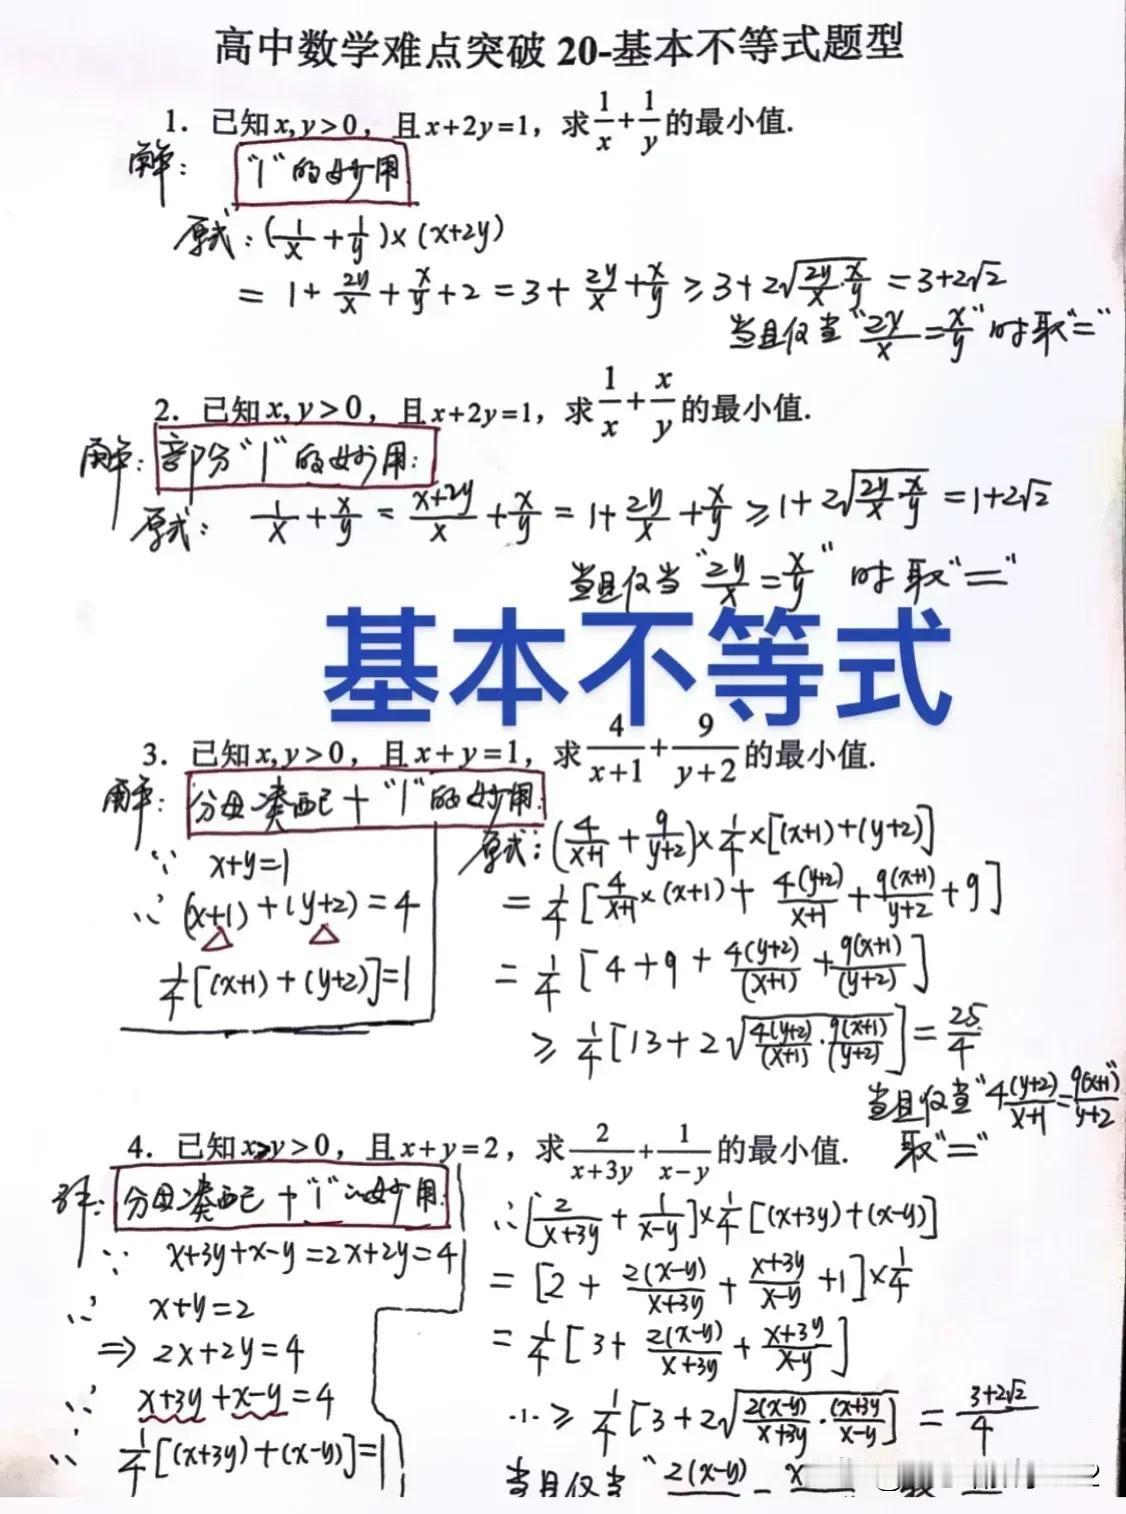 高中数学难点突破 20-基本不等式题型
1. 已知 x,y>0，且 x+2y=1，求 1/x + 1/y 的最小值.
解: "1"的妙用
原式: (1/x + 1/y)×(x+2y)
= 1 + 2y/x + x/y + 2 = 3 + 2y/x + x/y ≥ 3+2√(2y/x · x/y) = 3+2√2
当且仅当"2y/x = x/y"时取"="
2. 已知 x,y>0，且 x+2y=1，求 1/x + x/y 的最小值.
解: 部分"1"的妙用:
原式: 1/x + x/y = (x+2y)/x + x/y = 1 + 2y/x + x/y ≥ 1+2√(2y/x · x/y) = 1+2√2
当且仅当"2y/x = x/y"时取"="
基本不等式
3. 已知 x,y>0，且 x+y=1，求 4/(x+1) + 9/(y+2) 的最小值.
解: 分母凑配+"1"的妙用:
∵ x+y=1
∴ (x+1)+(y+2)=4
1/4[(x+1)+(y+2)]=1
原式: (4/(x+1) + 9/(y+2))×1/4×[(x+1)+(y+2)]
= 1/4[4/(x+1)×(x+1) + 4(y+2)/(x+1) + 9(x+1)/(y+2) + 9]
= 1/4[4+9+ 4(y+2)/(x+1) + 9(x+1)/(y+2)]
≥ 1/4[13+2√(4(y+2)/(x+1) · 9(x+1)/(y+2))] = 25/4
当且仅当"4(y+2)/(x+1) = 9(x+1)/(y+2)"
取"="
4. 已知 x>y>0，且 x+y=2，求 2/(x+3y) + 1/(x-y) 的最小值.
解: 分母凑配+"1"的妙用:
∵ x+3y+x-y=2x+2y=4
∴ x+y=2
⇒ 2x+2y=4
∴ x+3y+x-y=4
∴ 1/4[(x+3y)+(x-y)]=1
∴ [2/(x+3y) + 1/(x-y)]×1/4[(x+3y)+(x-y)]
= [2 + 2(x-y)/(x+3y) + (x+3y)/(x-y) + 1]×1/4
= 1/4[3 + 2(x-y)/(x+3y) + (x+3y)/(x-y)]
-1- ≥ 1/4[3+2√(2(x-y)/(x+3y) · (x+3y)/(x-y))] = (3+2√2)/4
当且仅当"2(x-y)